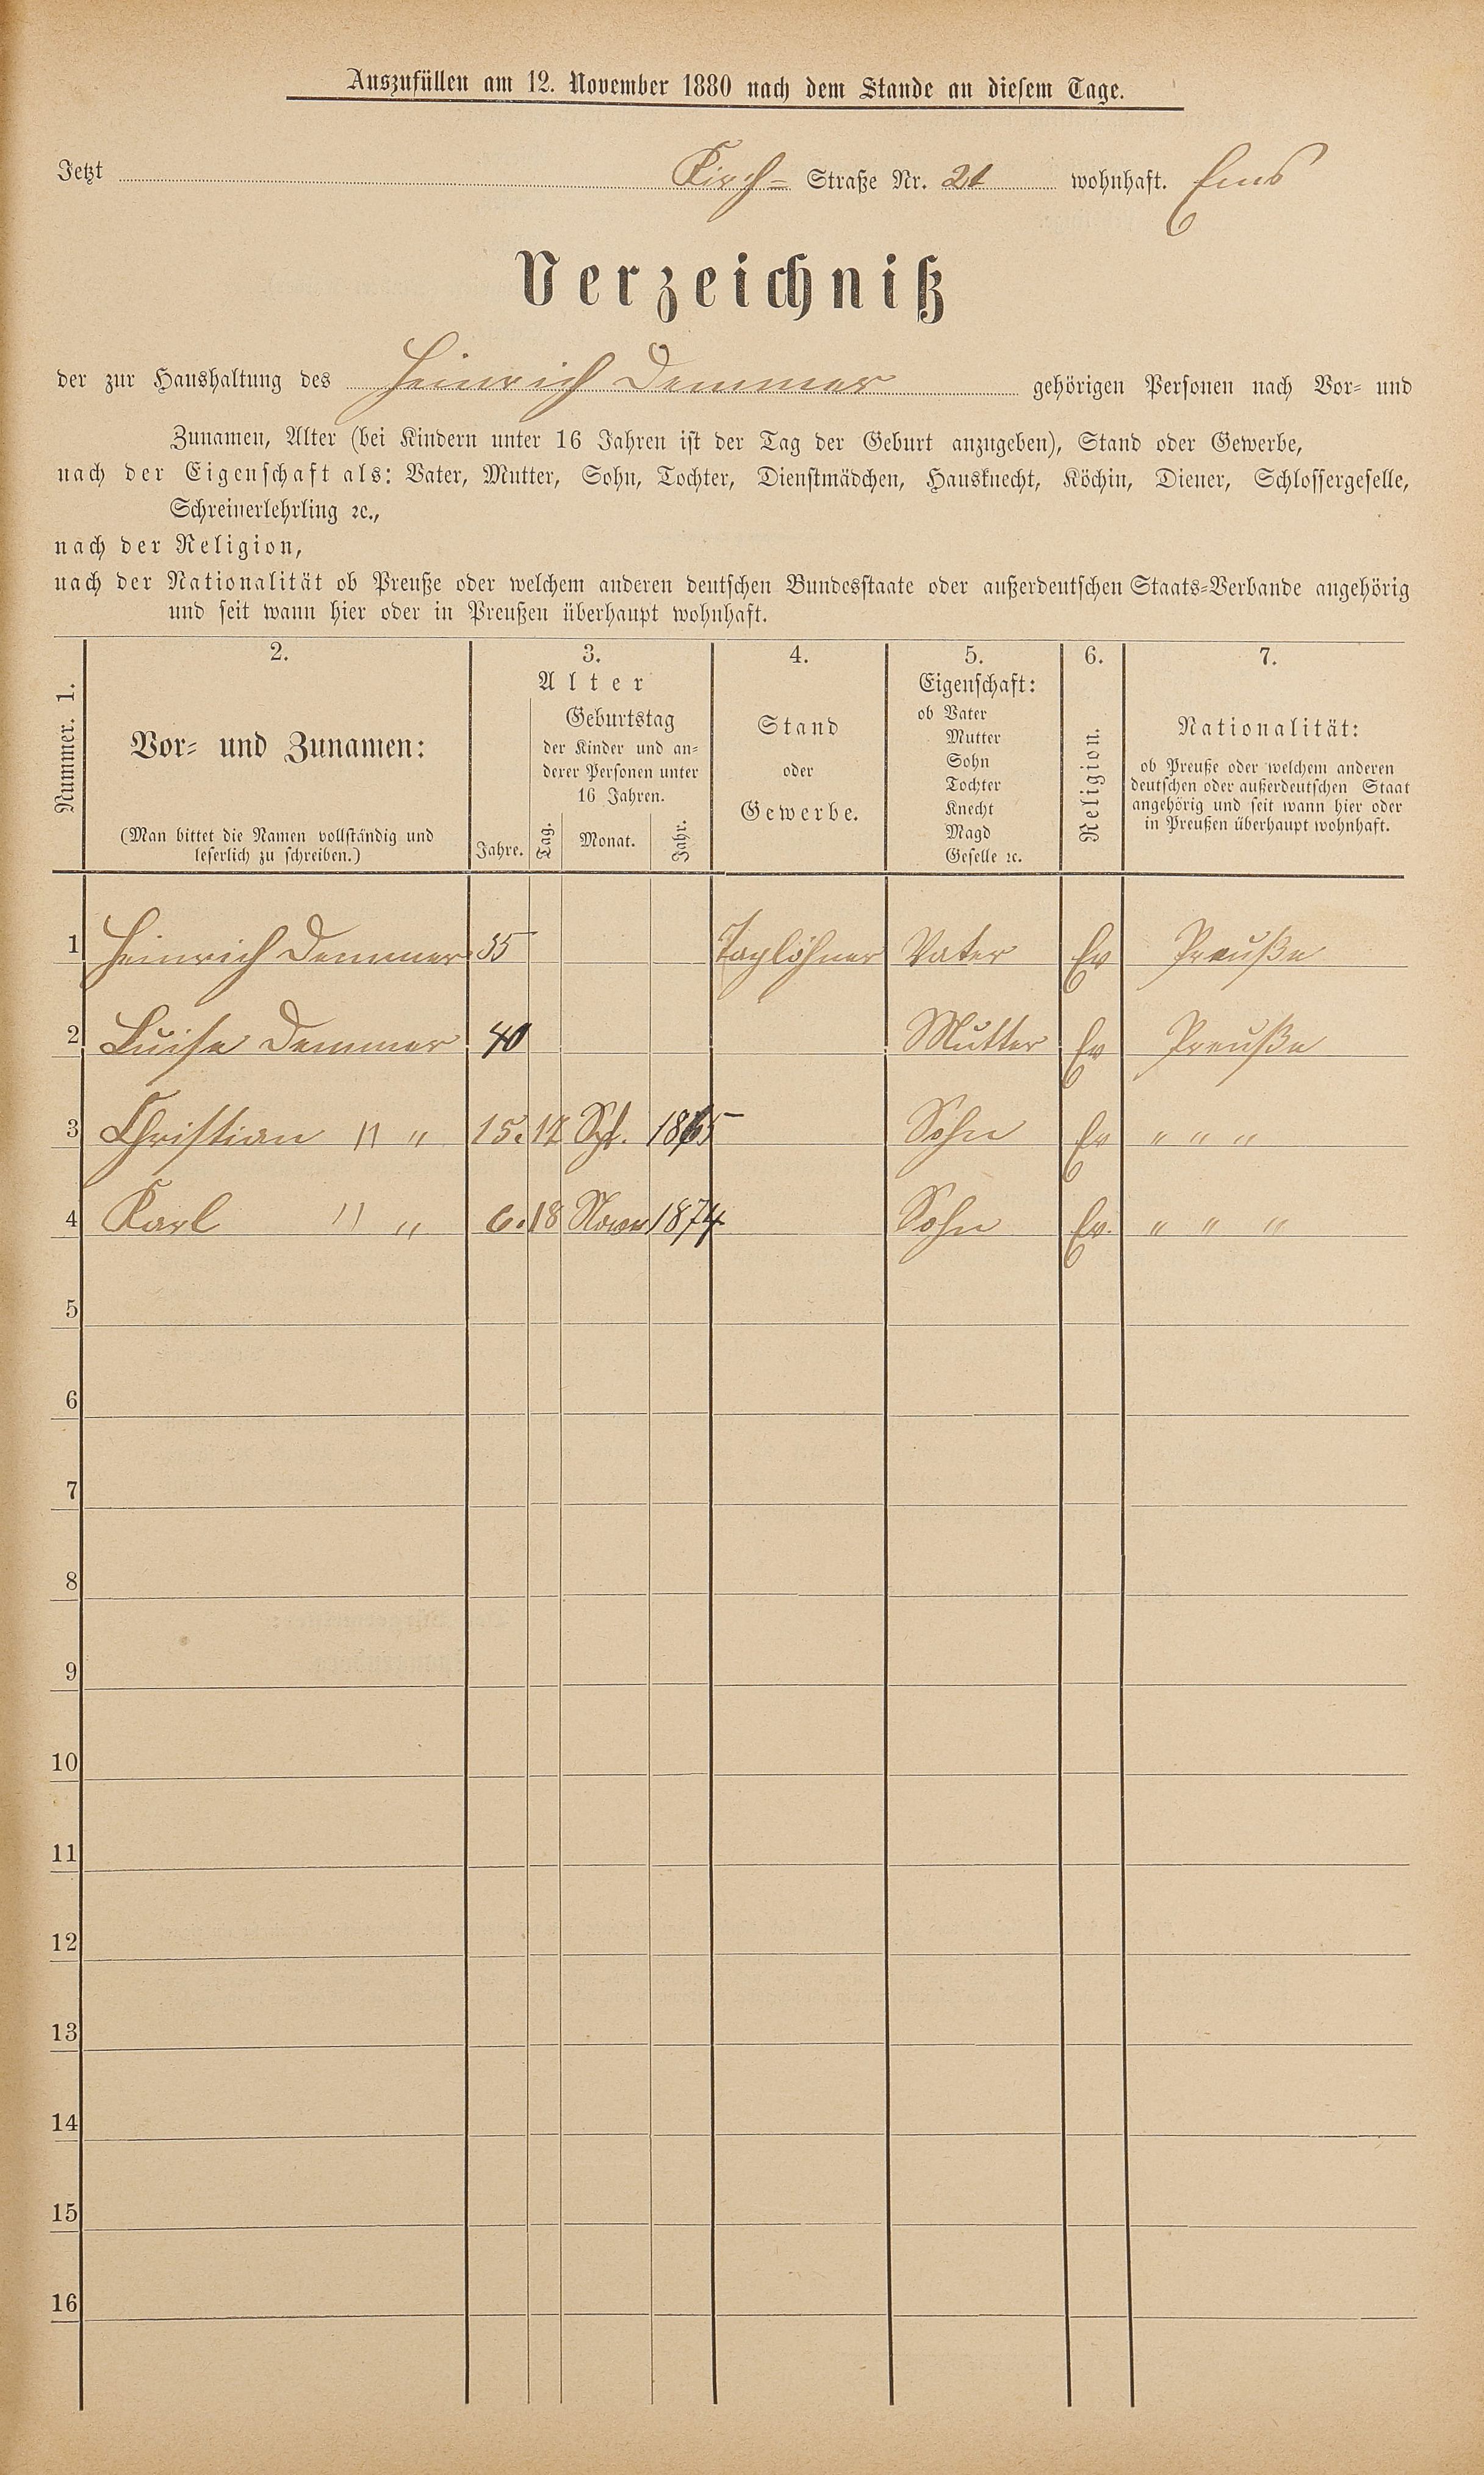 Auszufüllen am 12. November 1880 nach dem Stande an diesem Tage.
Jetzt Kirch- Straße Nr. 21 wohnhaft. Ems
Verzeichniß
der zur Haushaltung des Heinrich Demmer gehörigen Personen nach Vor- und
Zunamen, Alter (bei Kindern unter 16 Jahren ist der Tag der Geburt anzugeben), Stand oder Gewerbe,
nach der Eigenschaft als: Vater, Mutter, Sohn, Tochter, Dienstmädchen, Hausknecht, Köchin, Diener, Schlossergeselle,
Schreinerlehrling ꝛc.,
nach der Religion,
nach der Nationalität ob Preuße oder welchem anderen deutschen Bundesstaate oder außerdeutschen Staats-Verbande angehörig
und seit wann hier oder in Preußen überhaupt wohnhaft.
Nummer. 1.
2.
Vor- und Zunamen:
(Man bittet die Namen vollständig und
leserlich zu schreiben.)
3.
Alter
Jahre.
Geburtstag
der Kinder und an-
derer Personen unter
16 Jahren.
Tag. Monat. Jahr.
4.
Stand
oder
Gewerbe.
5.
Eigenschaft:
ob Vater
Mutter
Sohn
Tochter
Knecht
Magd
Geselle ꝛc.
6.
Religion.
7.
Nationalität:
ob Preuße oder welchem anderen
deutschen oder außerdeutschen Staat
angehörig und seit wann hier oder
in Preußen überhaupt wohnhaft.
1 Heinrich Demmer 35 Taglöhner Vater Ev Preuße
2 Luise Demmer 40 Mutter Ev Preuße
3 Christian " " 15. Spt. 1865 Sohn Ev " " "
4 Karl " " 6. 18 Novm 1874 Sohn Ev. " " "
5
6
7
8
9
10
11
12
13
14
15
16